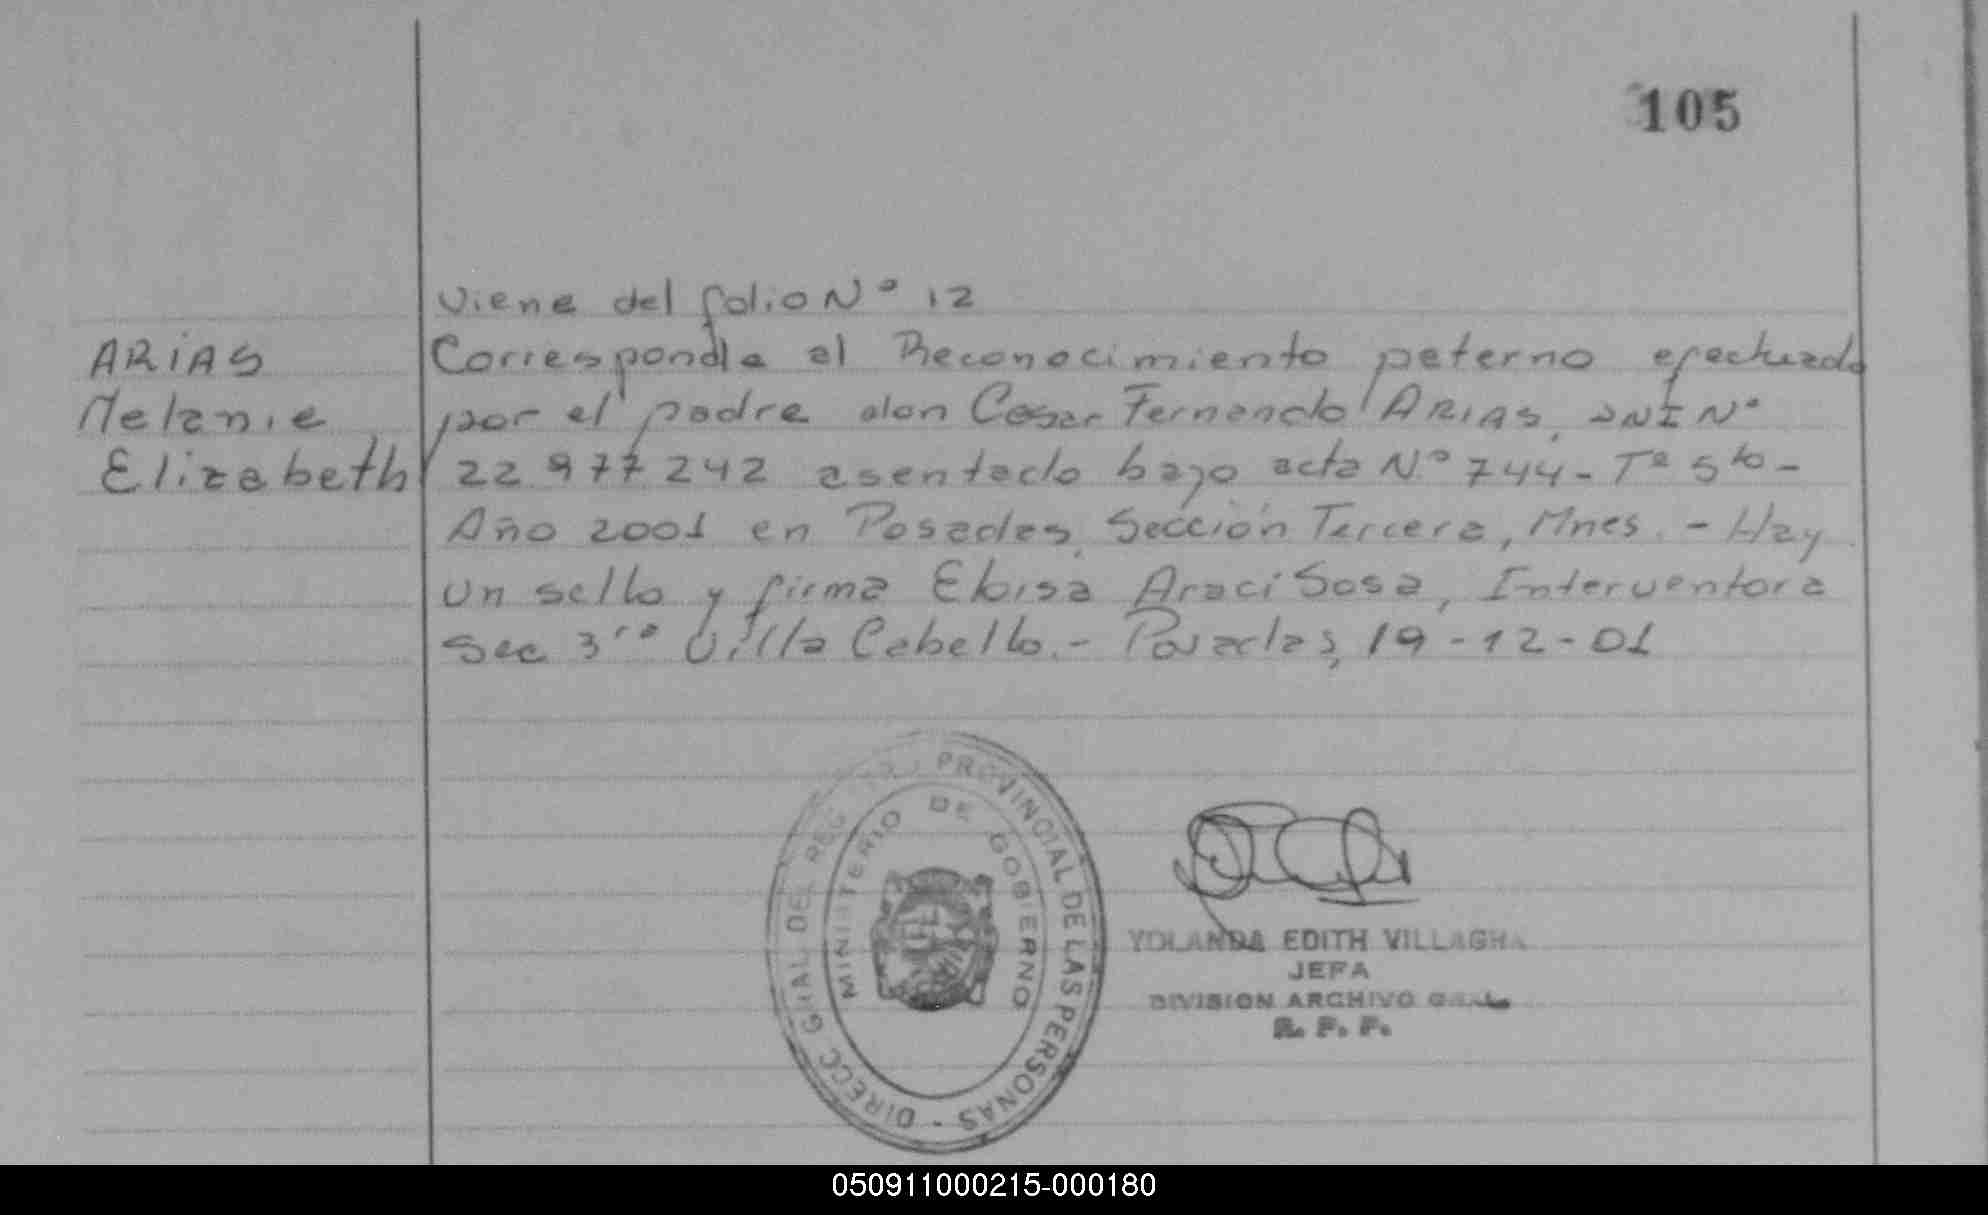 105
Viene del folio Nº 12
ARIAS
Melanie
Elizabeth
Corresponde al Reconocimiento paterno efectuado
por el padre don Cesar Fernando ARIAS, DNI Nº
22 977 242 asentado bajo acta Nº 744 - Tº 5to -
Año 2001 en Posadas, Sección Tercera, Mnes. - Hay
un sello y firma Eloisa Araci Sosa, Interventora
Sec 3ra Villa Cabello. - Posadas, 19 - 12 - 01
DIRECC GRAL DEL REG PROVINCIAL DE LAS PERSONAS -
MINISTERIO DE GOBIERNO
YOLANDA EDITH
JEFA
DIVISION ARCHIVO GRAL
050911000215-000180